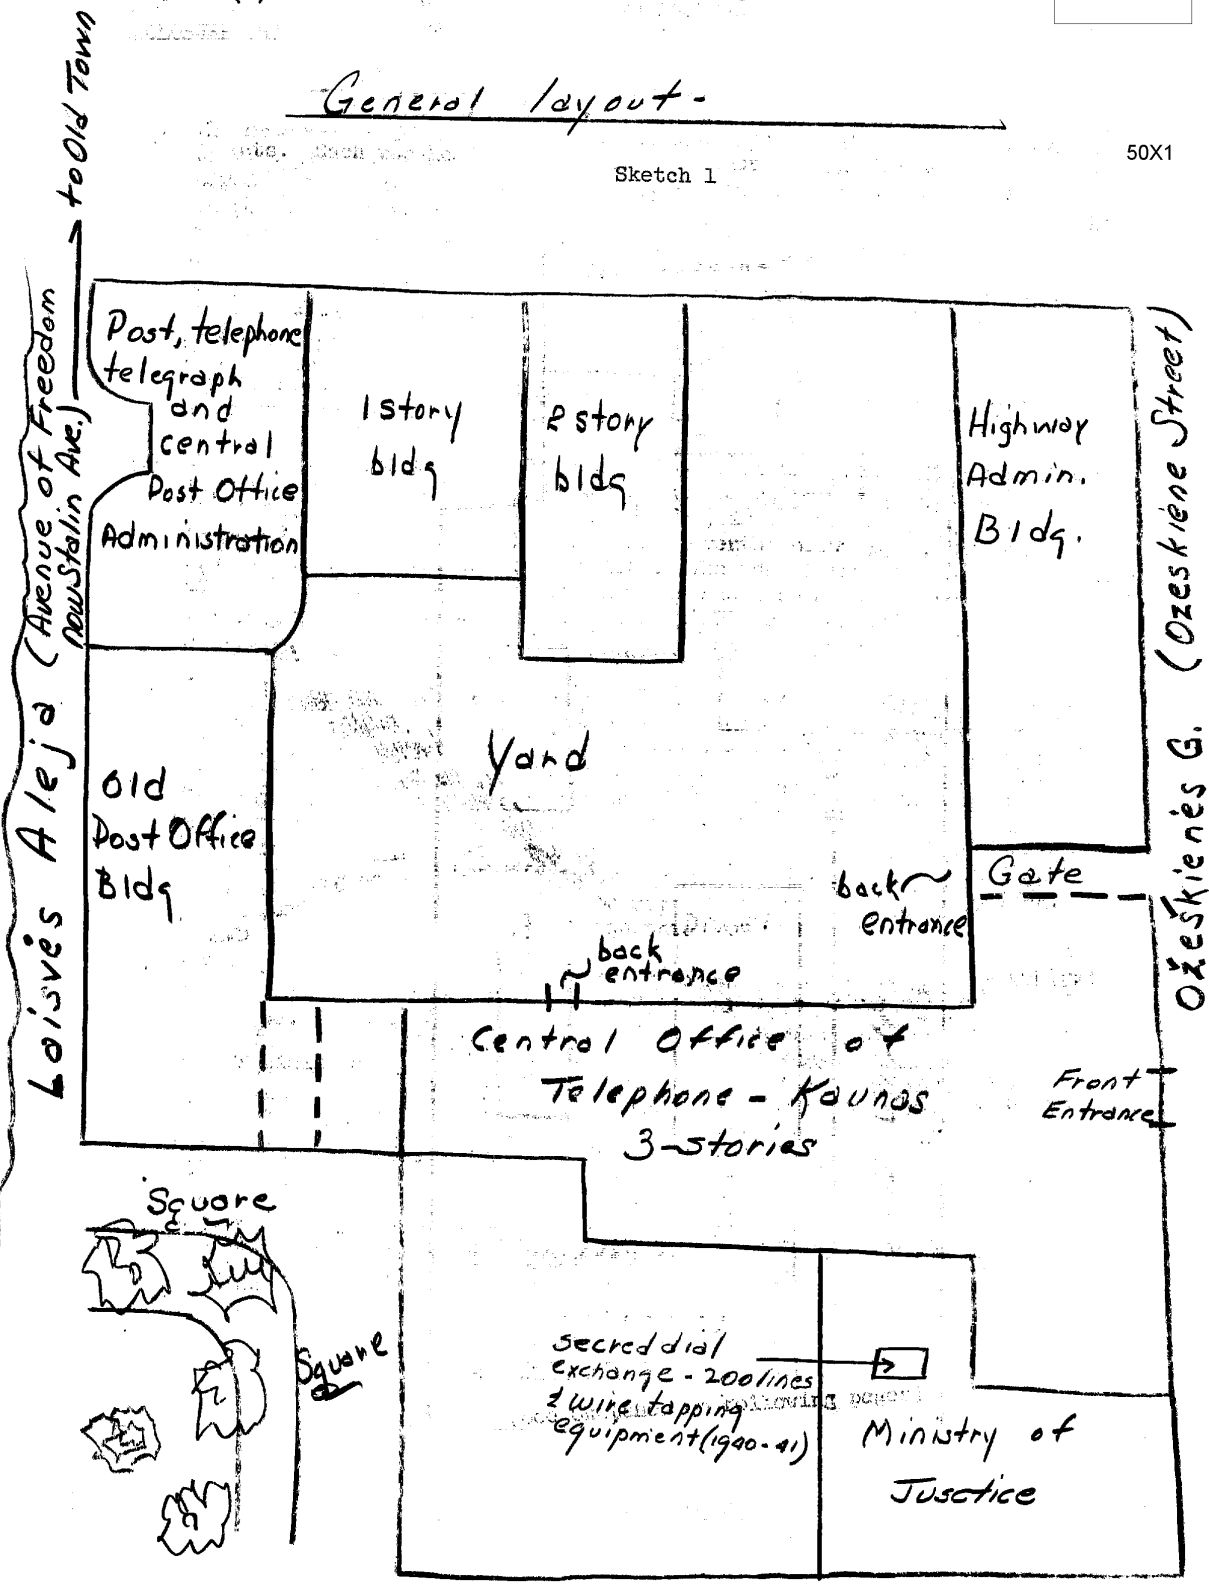 General layout-
50X1
Sketch 1
to Old Town
Laisvės Alėja (Avenue of Freedom
now Stalin Ave.)
Post, telephone
telegraph
and
central
Post Office
Administration
1 story
bldg
2 story
bldg
Highway
Admin.
Bldg.
Ožeškienės G. (Ozeskiene Street)
Yard
Old
Post Office
Bldg
Gate
back
entrance
back
entrance
Central Office of
Telephone - Kaunas
3-stories
Front
Entrance
Square
Square
secred dial
exchange - 200 lines
& wire tapping
equipment (1940-41)
Ministry of
Jusctice